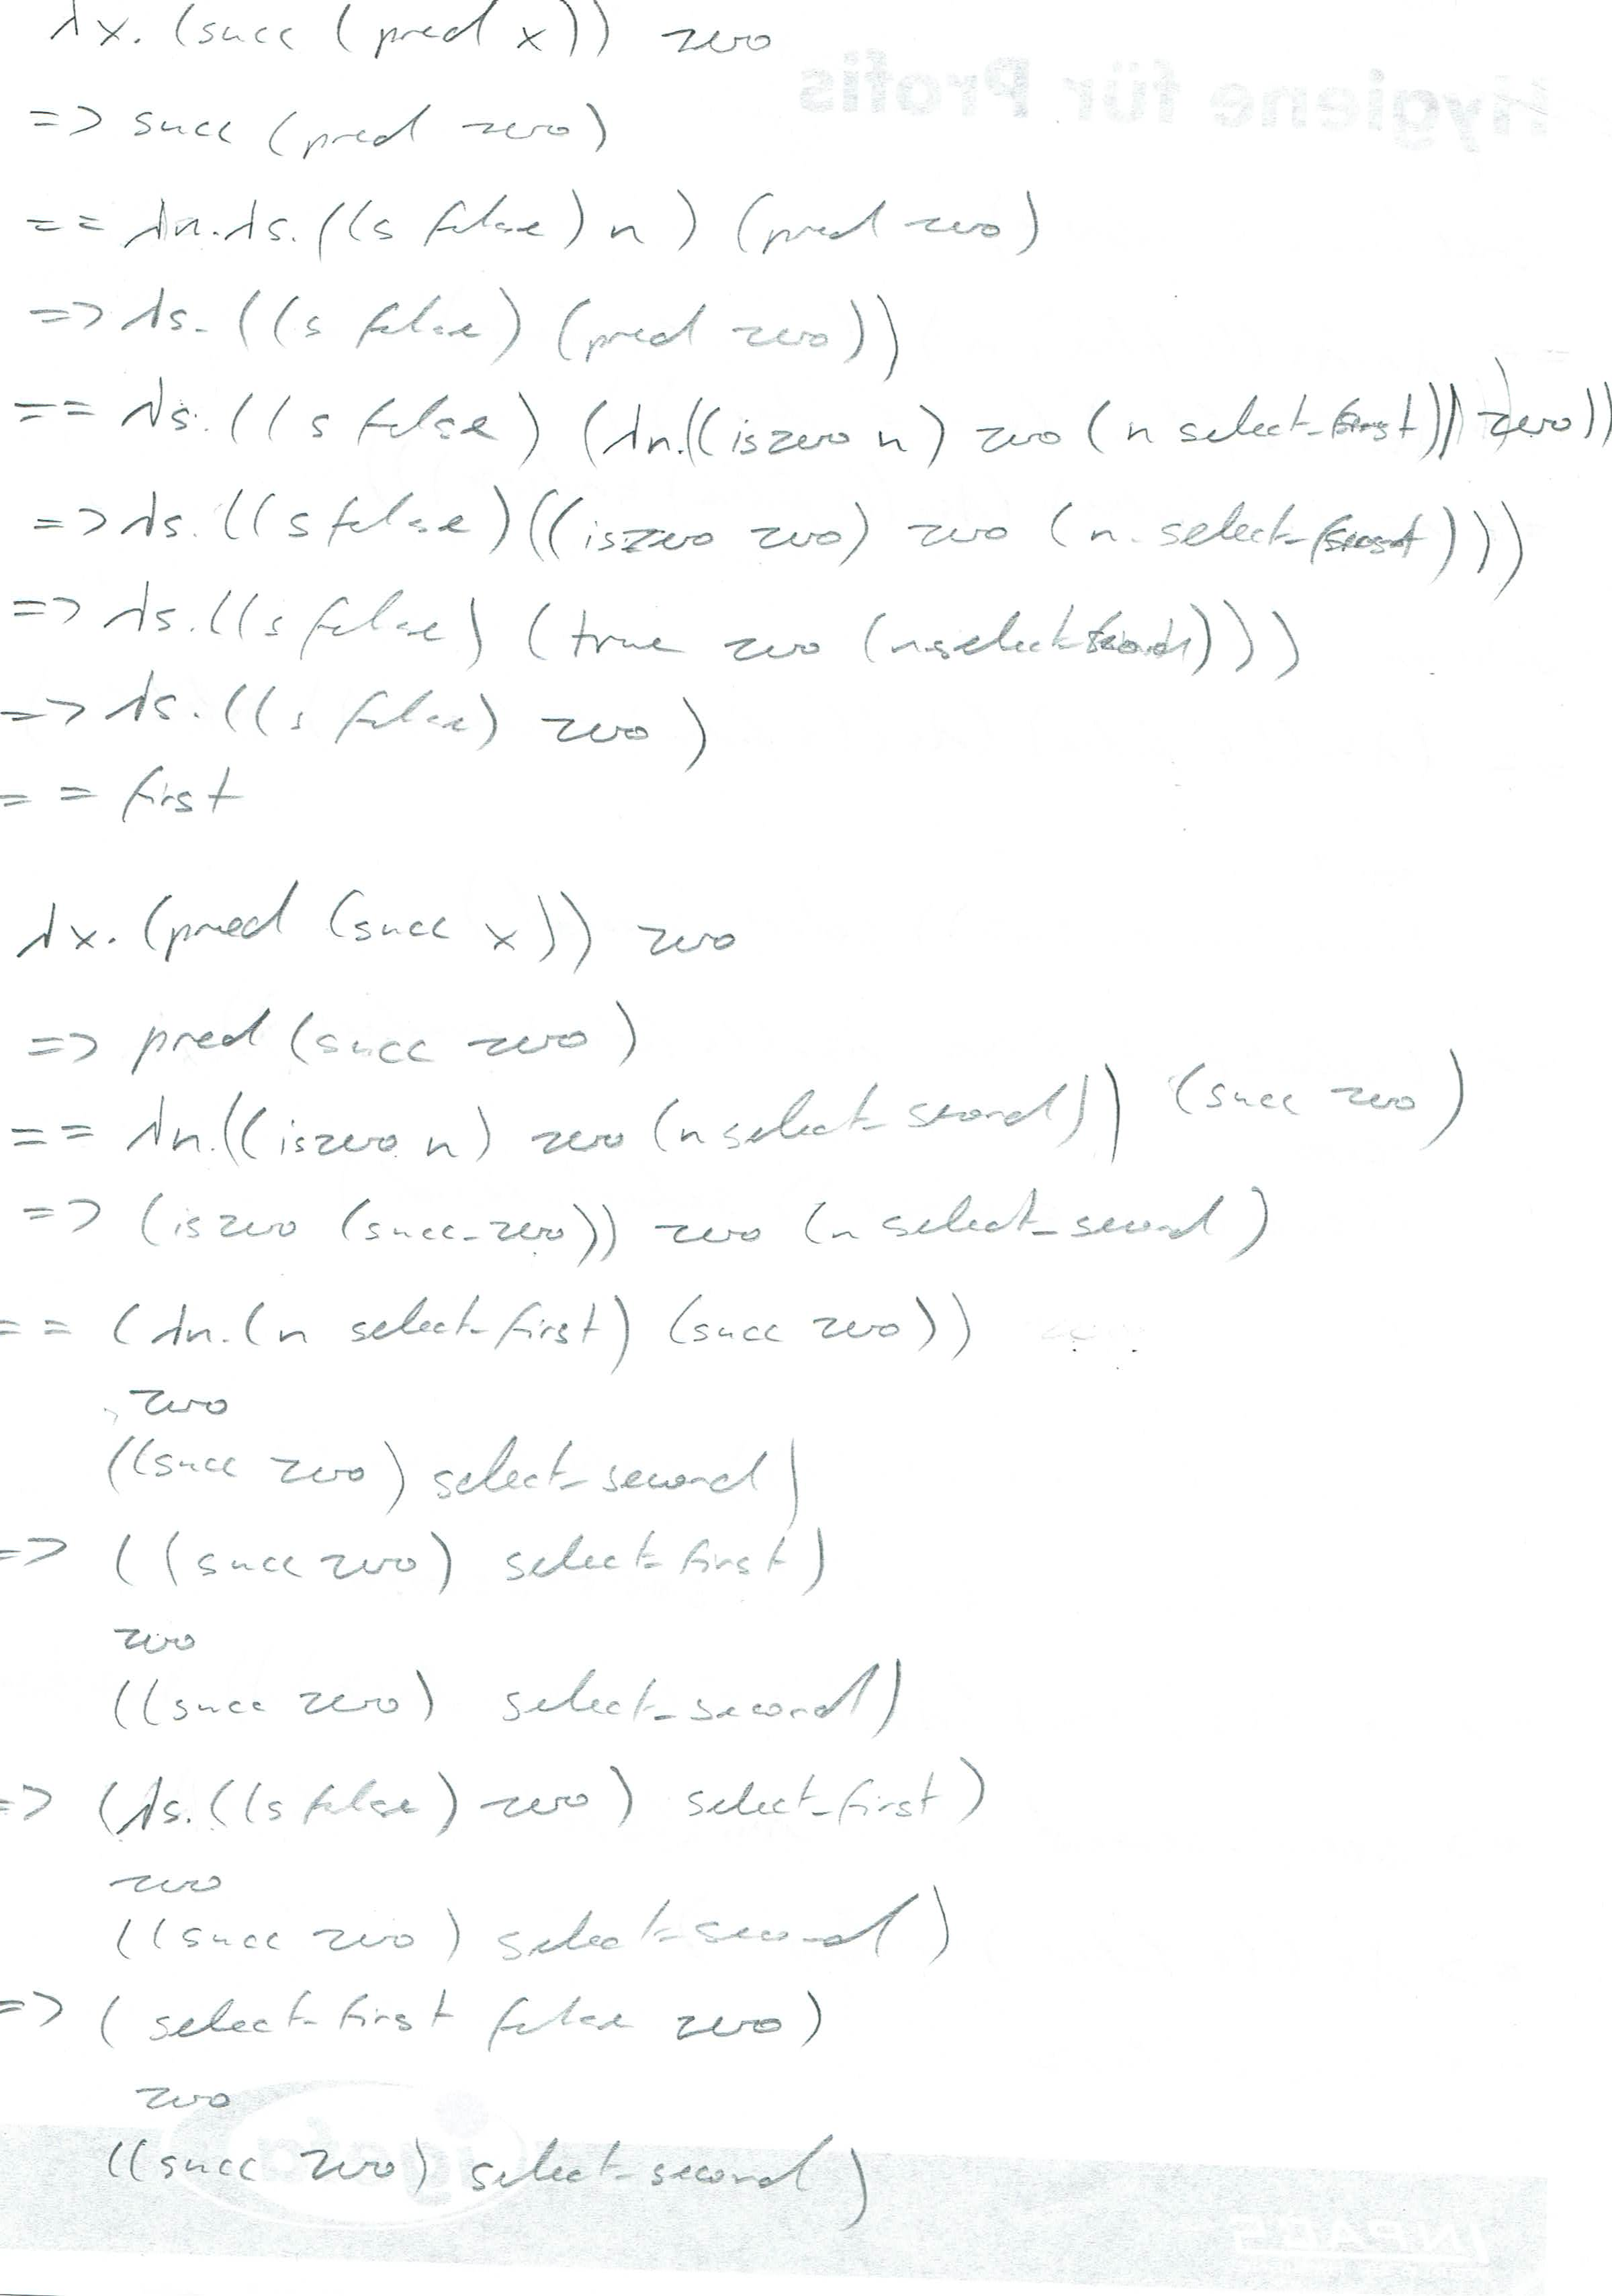 λx. (succ (pred x)) zero
Hygiene für Profis
=> succ (pred zero)
== λn.λs.((s false) n ) (pred zero)
=> λs. ((s false) (pred zero))
== λs. ((s false) (λn.((iszero n) zero (n select-first))) zero))
=> λs. ((s false) ((iszero zero) zero (n select-)))
=> λs. ((s false) (true zero (n select-)))
=> λs. ((s false) zero )
== first
λx. (pred (succ x)) zero
=> pred (succ zero)
== λn.((iszero n) zero (n select_second)) (succ zero)
=> (iszero (succ_zero)) zero (n select_second)
== (λn.(n select-first) (succ zero))
zero
((succ zero) select_second)
=> ((succ zero) select-first)
zero
((succ zero) select_second)
=> (λs.((s false) zero) select_first)
zero
((succ zero) select-second)
=> ( select-first false zero)
zero
((succ zero) select_second)
igefa
INPACS